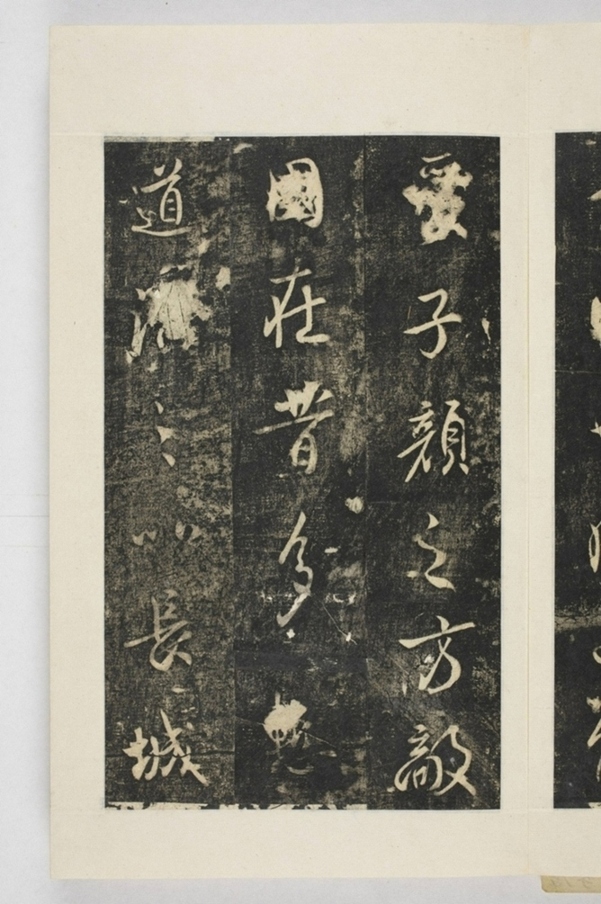 子顏之方敵
國在昔多
道濟之以長城